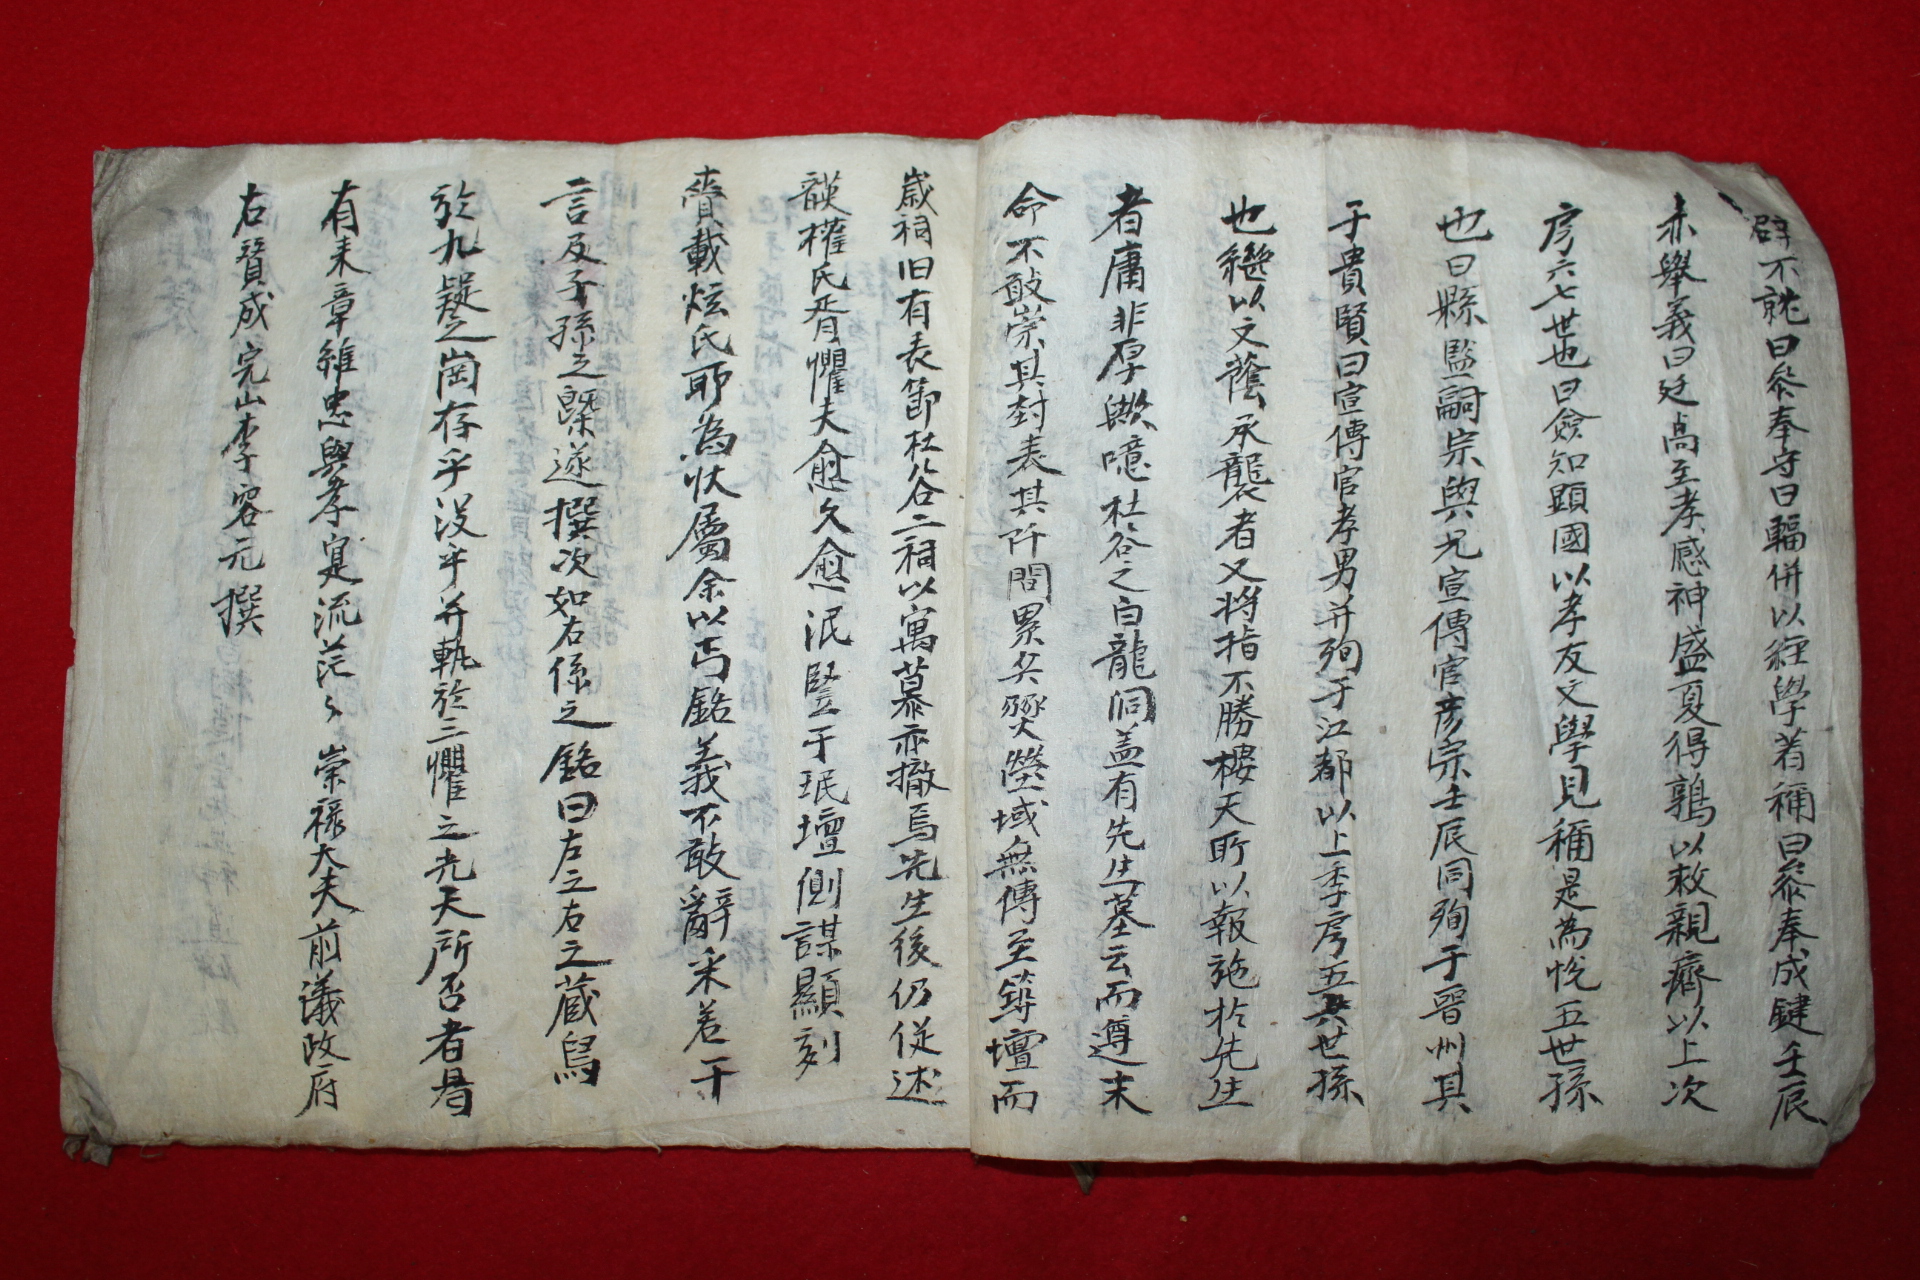 辟不就曰參奉守曰輻併以經學著稱曰參奉成鍵壬辰
赤舉義曰廷高至孝感神盛夏得鶉以救親癠以上次
房六七世也曰僉知顯國以孝友文學見稱是為悅五世孫
也曰縣監嗣宗與兄宣傳官彦宗壬辰同殉于晋州其
于貴賢曰宣傳官孝男并殉于江都以上季房五六世孫
也繼以文蔭承襲者又將指不勝樓天所以報施於先生
者庸非厚歟噫杜谷之白龍洞盖有先生墓云而遵末
命不敢崇其封表其阡間累兵燹塋域無傳至築壇而
歲祠旧有表節杜谷二祠以寓慕亦撤焉先生後仍従述
謨權氏胥懼夫愈久愈泯竪于珉壇側謀顯刻
賫載炫氏耶為状屬余以丐銘義不敢辭采差于
言及子孫之槩遂撰次如右係之銘曰左之右之藏舃
於九疑之崗存乎没乎并執於三懼之光天所否者昌
有耒章雖忠與孝寔流茫〻崇祿大夫前議政府
右贊成完山李容元撰